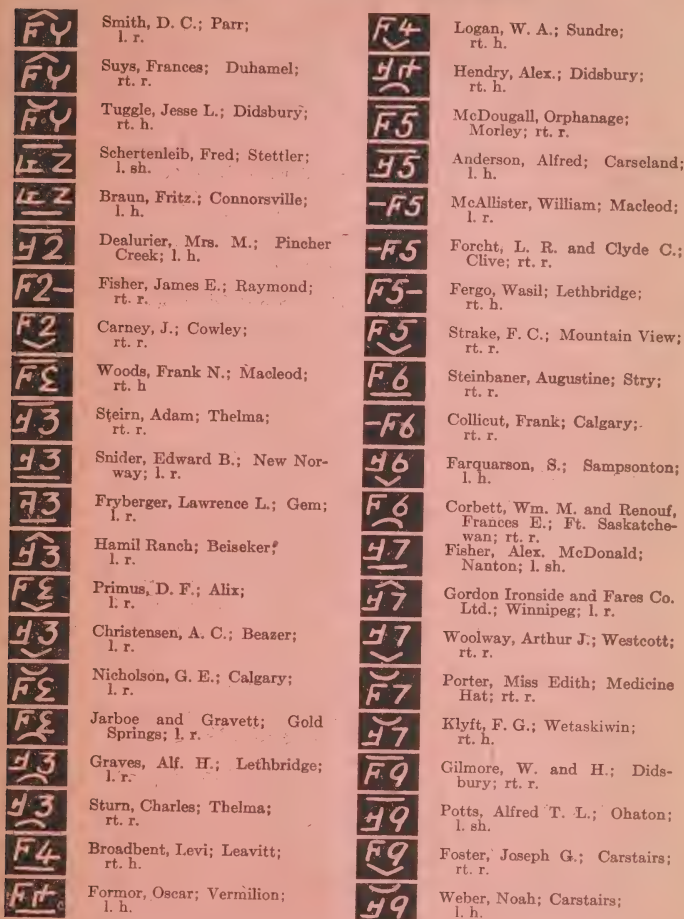 Smith, D. C.; Parr;
l. r.
Suys, Frances; Duhamel;
rt. r.
Tuggle, Jesse L.; Didsbury;
rt. h.
Schertenleib, Fred; Stettler;
l. sh.
Braun, Fritz.; Connorsville;
l. h.
Dealurier, Mrs. M.; Pincher
Creek; l. h.
F2-
Fisher, James E.; Raymond;
rt. r.
F2
Carney, J.; Cowley;
rt. r.
Woods, Frank N.; Macleod;
rt. h
Steirn, Adam; Thelma;
rt. r.
Snider, Edward B.; New Nor-
way; l. r.
Fryberger, Lawrence L.; Gem;
l. r.
Hamil Ranch; Beiseker;
l. r.
Primus, D. F.; Alix;
l. r.
Christensen, A. C.; Beazer;
l. r.
Nicholson, G. E.; Calgary;
l. r.
Jarboe and Gravett; Gold
Springs; l. r.
Graves, Alf. H.; Lethbridge;
l. r.
Sturn, Charles; Thelma;
rt. r.
F4
Broadbent, Levi; Leavitt;
rt. h.
Formor, Oscar; Vermilion;
l. h.
F4
Logan, W. A.; Sundre;
rt. h.
Hendry, Alex.; Didsbury;
rt. h.
F5
McDougall, Orphanage;
Morley; rt. r.
Anderson, Alfred; Carseland;
l. h.
-F5
McAllister, William; Macleod;
l. r.
-F5
Forcht, L. R. and Clyde C.;
Clive; rt. r.
F5-
Fergo, Wasil; Lethbridge;
rt. h.
F5
Strake, F. C.; Mountain View;
rt. r.
F6
Steinbaner, Augustine; Stry;
rt. r.
-F6
Collicut, Frank; Calgary;
rt. r.
Farquarson, S.; Sampsonton;
l. h.
F6
Corbett, Wm. M. and Renouf,
Frances E.; Ft. Saskatche-
wan; rt. r.
Fisher, Alex. McDonald;
Nanton; l. sh.
Gordon Ironside and Fares Co.
Ltd.; Winnipeg; l. r.
Woolway, Arthur J.; Westcott;
rt. r.
F7
Porter, Miss Edith; Medicine
Hat; rt. r.
Klyft, F. G.; Wetaskiwin;
rt. h.
F9
Gilmore, W. and H.; Dids-
bury; rt. r.
Potts, Alfred T. L.; Ohaton;
l. sh.
F9
Foster, Joseph G.; Carstairs;
rt. r.
Weber, Noah; Carstairs;
l. h.